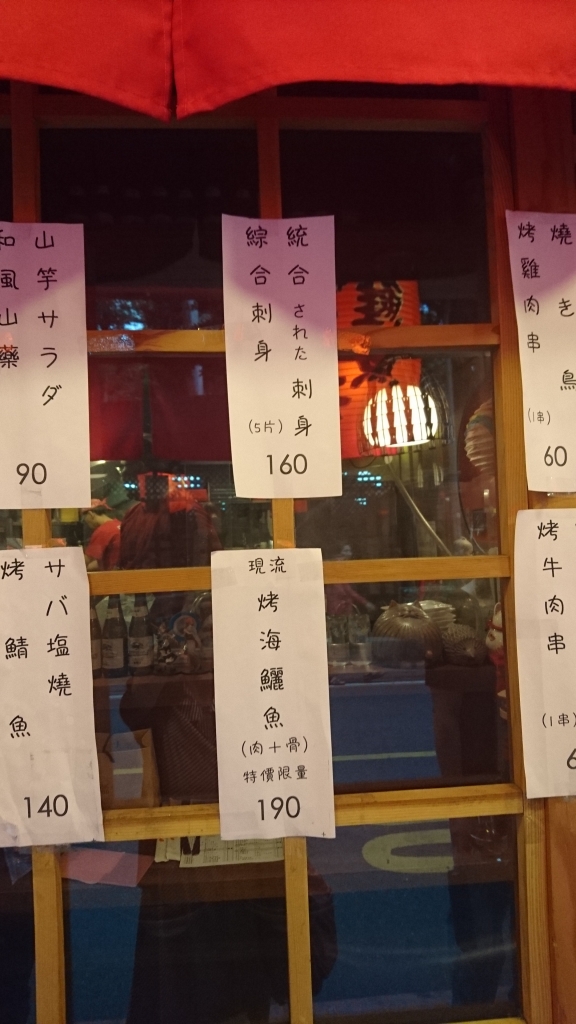 山芋サラダ
和風山藥
90
統合された刺身
綜合刺身
(5片)
160
燒き鳥
烤雞肉串
(1串)
60
サバ塩燒
烤鯖魚
140
現流
烤海鱺魚
(肉+骨)
特價限量
190
烤牛肉串
(1串)